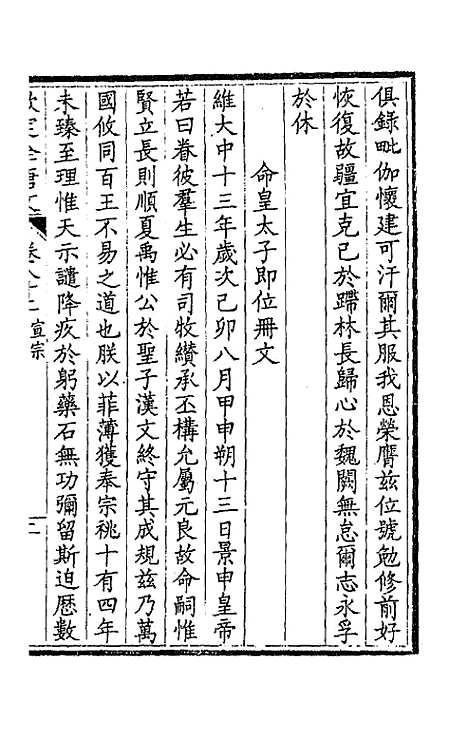 俱錄毗伽懷建可汗爾其服我恩榮膺茲位號勉修前好
恢復故疆宜克己於蹛林長歸心於魏闕無怠爾志永孚
於休
命皇太子即位冊文
維大中十三年歲次己卯八月甲申朔十三日景申皇帝
若曰眷彼羣生必有司牧纘承丕構允屬元良故命嗣惟
賢立長則順夏禹惟公於聖子漢文終守其成規茲乃萬
國攸同百王不易之道也朕以菲薄獲奉宗祧十有四年
未臻至理惟天示譴降疚於躬藥石無功彌留斯迫厯數
欽定全唐文 卷八十 宣宗